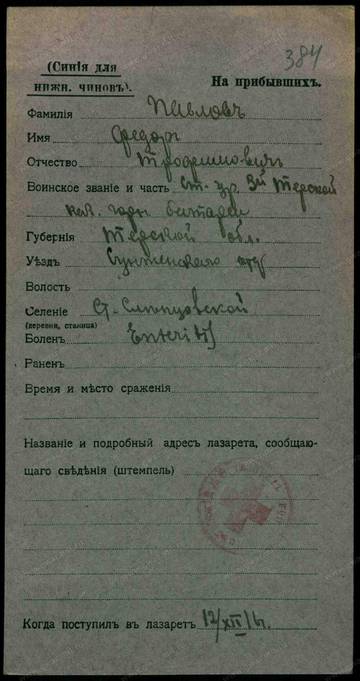 384
(Синія для
нижн. чиновъ).
На прибывшихъ.
Фамилія Павловъ
Имя Федоръ
Отчество Трофимовичъ
Воинское званіе и часть Ст. ур. 3й Терской
каз. батареи
Губернія Терской обл.
Уѣздъ Сунженскаго отд
Волость
Селеніе Ст. Слѣпцовской
(деревня, станица)
Боленъ Enteritis
Раненъ
Время и мѣсто сраженія
Названіе и подробный адресъ лазарета, сообщаю-
щаго свѣдѣнія (штемпель)
Когда поступилъ въ лазаретъ 12/XII/16г.